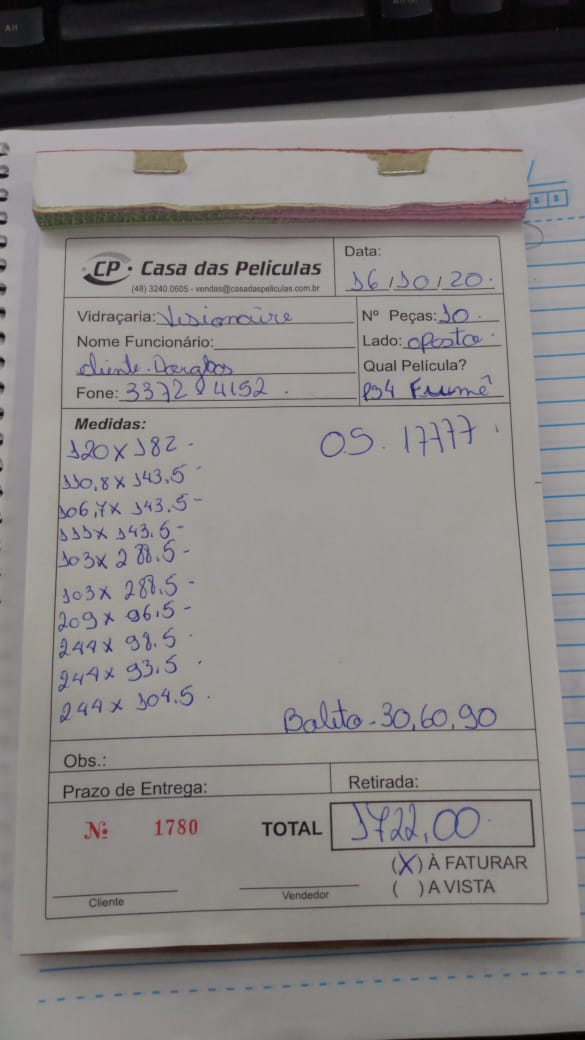 CP Casa das Películas
(48) 3240.0605 - vendas@casadaspeliculas.com.br
Data:
16/10/20.
Vidraçaria: Visionaire
Nome Funcionário:
cliente-Douglas
Fone: 3372 4152.
Nº Peças: 10.
Lado: oposto.
Qual Película?
PS4 Fumê
Medidas:
OS. 17777.
120 x 182 -
110,8 x 143,5 -
106,7 x 143,5 -
111 x 143,5 -
103 x 288,5 -
103 x 288,5 -
209 x 96,5 -
244 x 98,5 -
244 x 93,5 -
244 x 104,5 -
Boleto - 30, 60, 90
Obs.:
Prazo de Entrega:
Retirada:
Nº 1780
TOTAL 1722,00
(X) À FATURAR
( ) A VISTA
Cliente
Vendedor